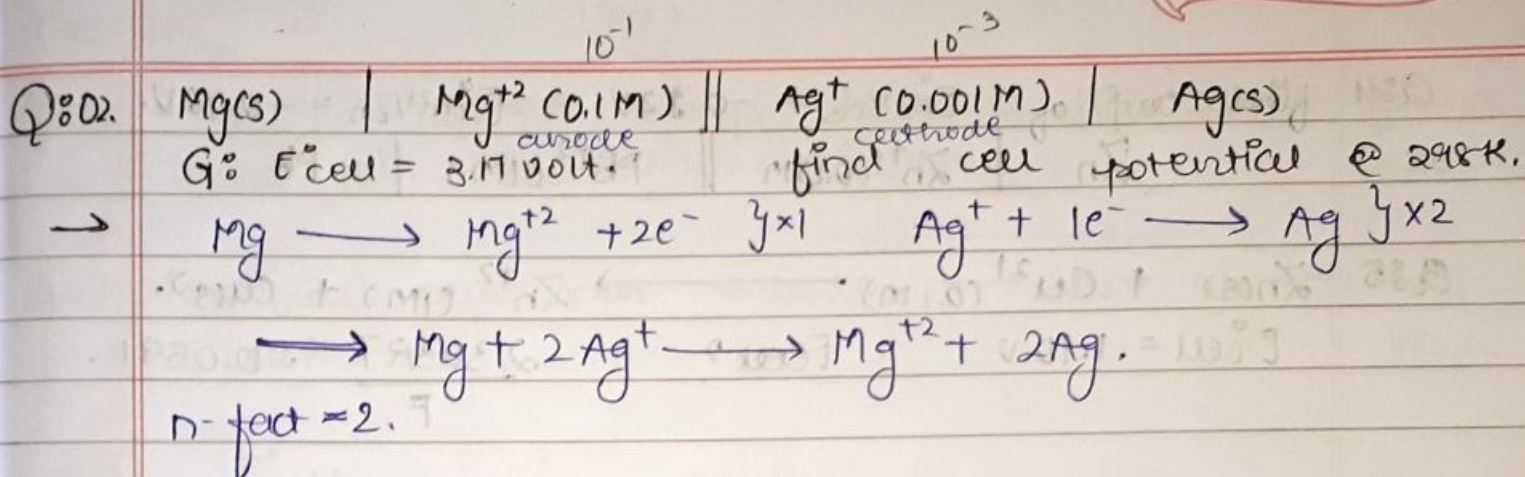 10⁻¹ 10⁻³
Q:02. Mg(s) | Mg⁺² (0.1M) || Ag⁺ (0.001M) | Ag(s)
anode cathode
G: E°cell = 3.17 volt. find cell potential @ 298K.
→ Mg ⟶ Mg⁺² + 2e⁻ }×1 Ag⁺ + 1e⁻ ⟶ Ag }×2
⟹ Mg + 2Ag⁺ ⟶ Mg⁺² + 2Ag.
n-fact = 2.